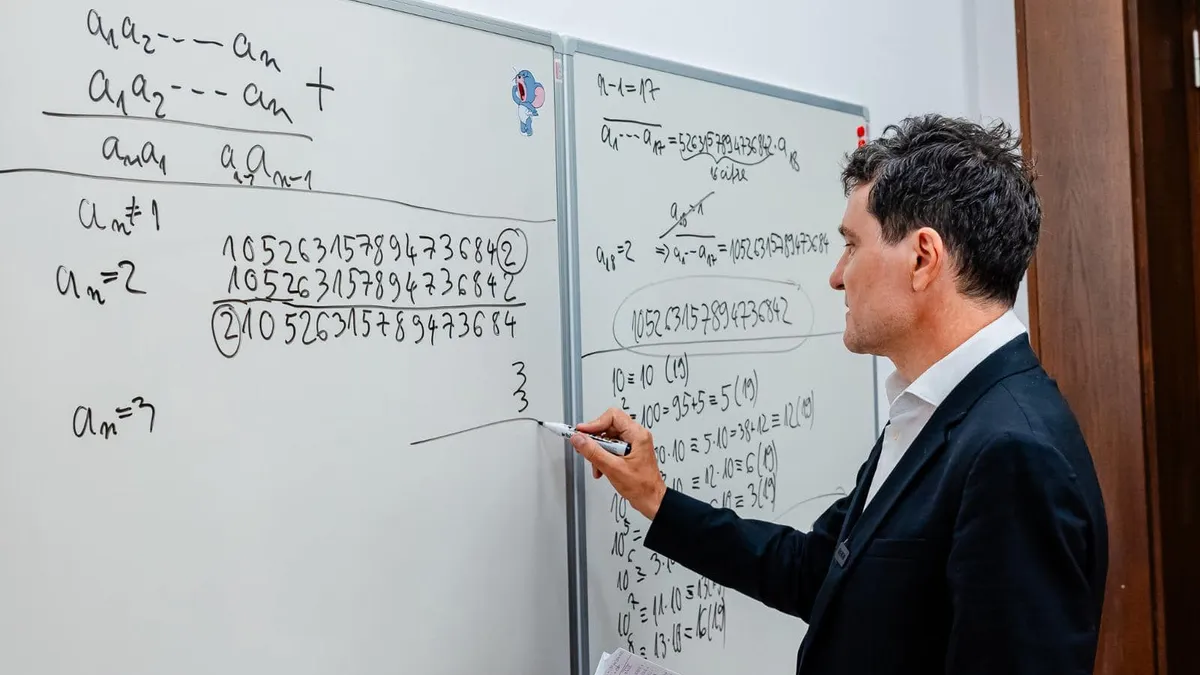 a₁a₂---aₙ
a₁a₂---aₙ +
aₙa₁ a₂aₙ₋₁
aₙ≠1
aₙ=2
10526315789473684②
105263157894736842
②10526315789473684
aₙ=3
3
3
n-1=17
a₁...a₁₇=52631578947736842·a₁₈
a₁₈=1
a₁₈=2 ⇒a₁...a₁₇=10526315789473684
105263157894736842
10≡10 (19)
²=100=95+5≡5(19)
0·10≡5·10=38+12≡12(19)
≡12·10≡6(19)
≡3(19)
10⁵=
10⁶≡3·10
10⁷≡11·10≡
10⁸≡13·10≡16(19)